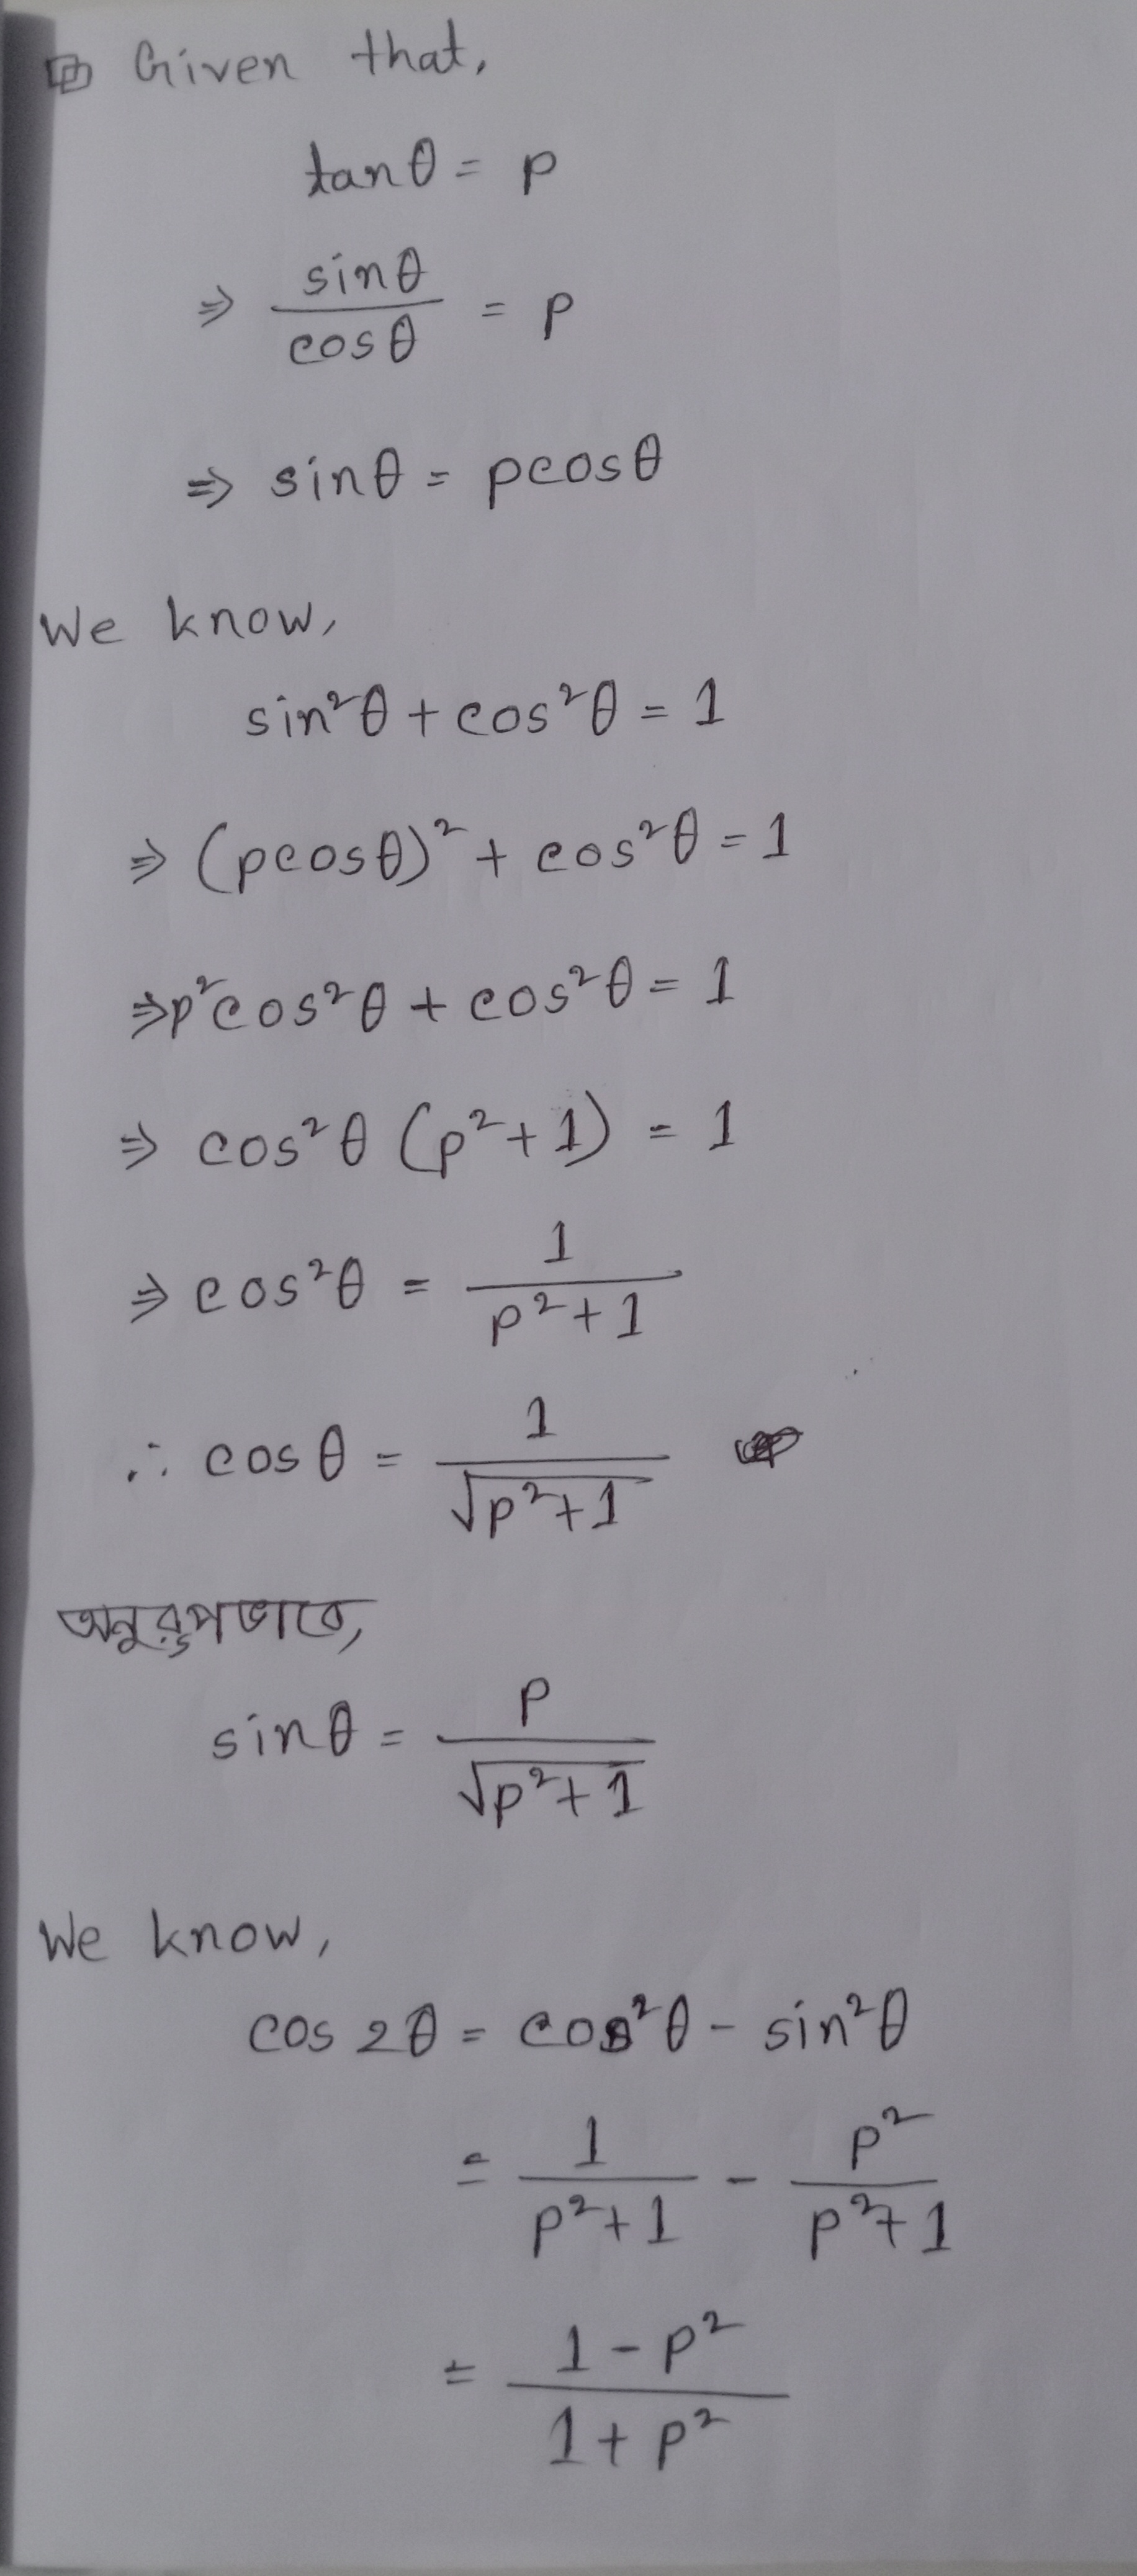 Given that,
tanθ = p
⇒ sinθ/cosθ = p
⇒ sinθ = pcosθ
We know,
sin²θ + cos²θ = 1
⇒ (pcosθ)² + cos²θ = 1
⇒ p²cos²θ + cos²θ = 1
⇒ cos²θ (p²+1) = 1
⇒ cos²θ = 1/(p²+1)
∴ cosθ = 1/√(p²+1)
অনুরুপভাবে,
sinθ = p/√(p²+1)
We know,
cos 2θ = cos²θ - sin²θ
= 1/(p²+1) - p²/(p²+1)
= (1-p²)/(1+p²)